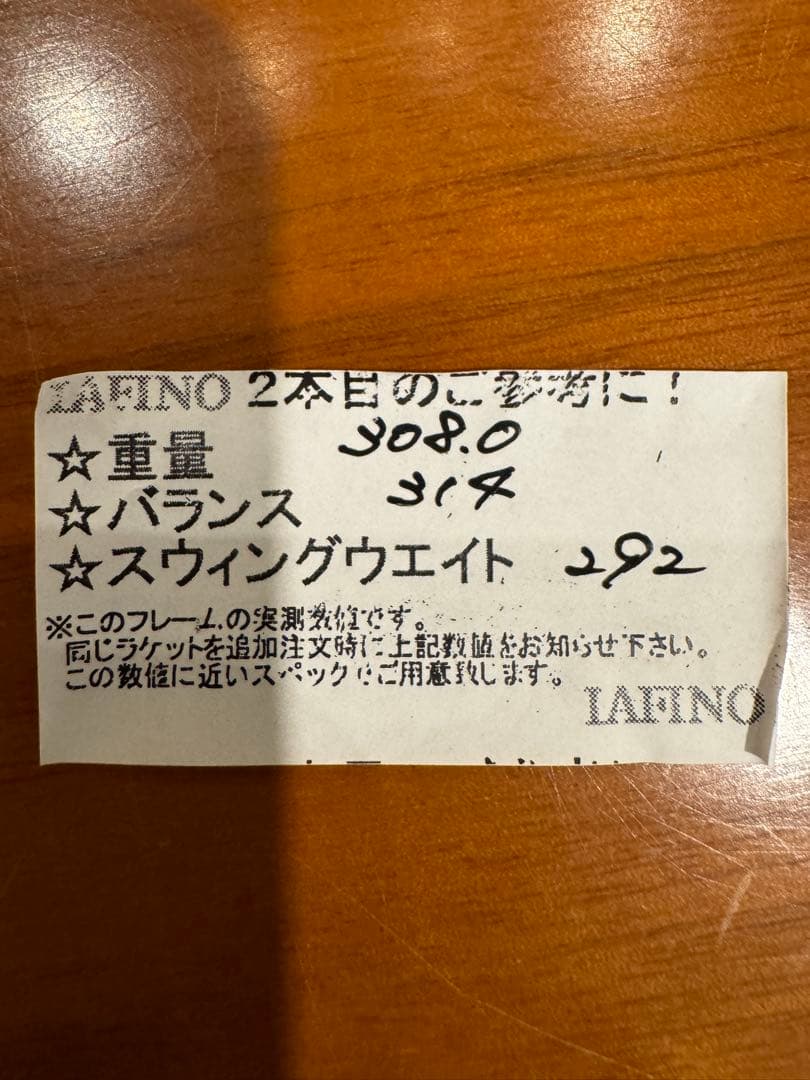 LAFINO 2本目のご参考に!
☆重量 308.0
☆バランス 314
☆スウィングウエイト 292
※このフレームの実測数値です。
同じラケットを追加注文時に上記数値をお知らせ下さい。
この数値に近いスペックでご用意致します。
LAFINO